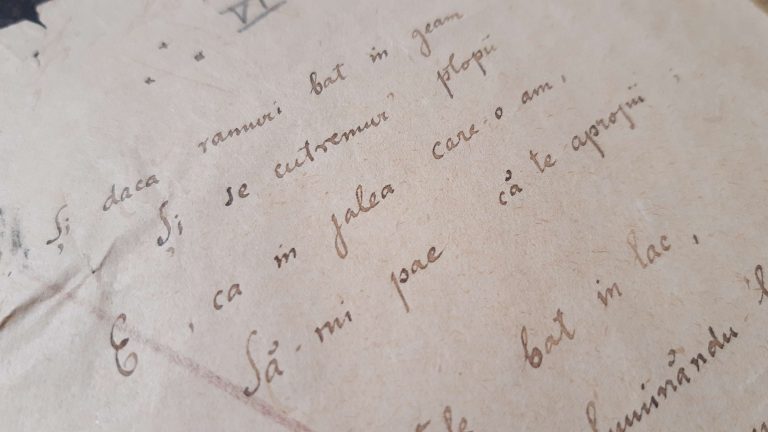 VI
Și daca ramuri bat in geam
Și se cutremur' plopii
E, ca in jalea care-o am,
Să-mi pae că te apropii,
bat in lac,
luminându